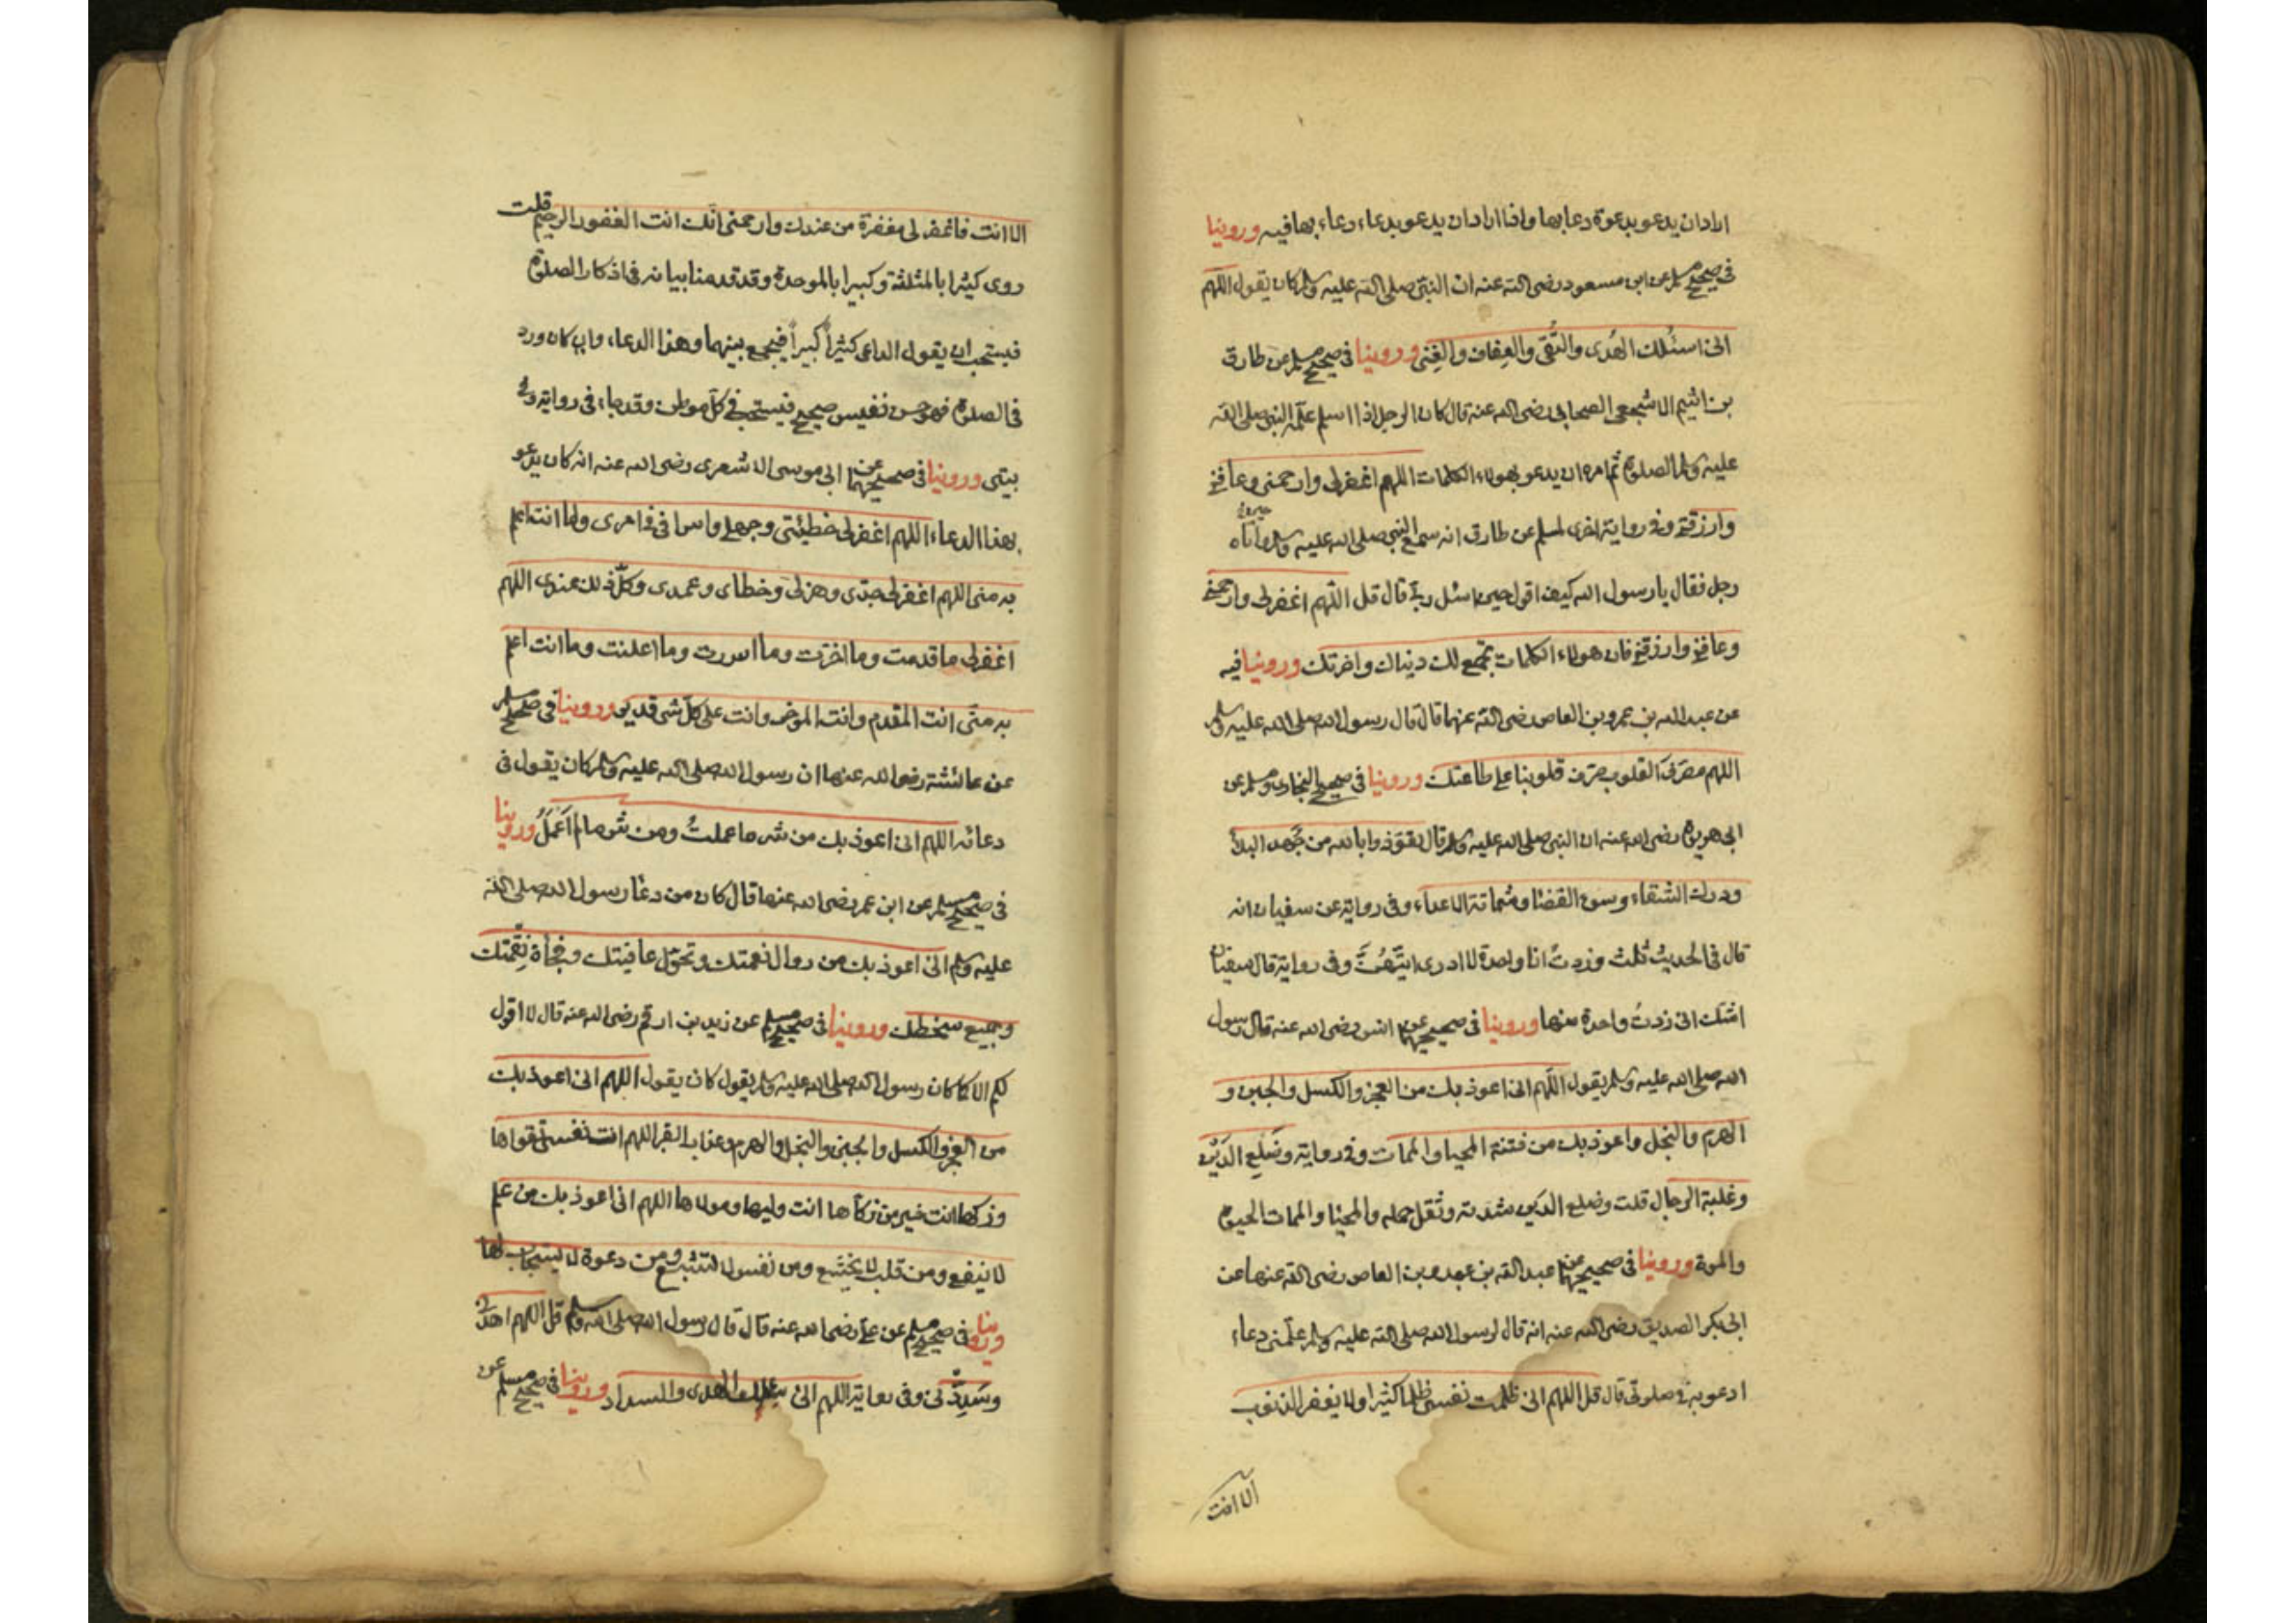 اراد ان يدعو بدعوة دعا بها واذا اراد ان يدعو بدعاء دعاء بها فيه وروينا
فى صحيح مسلم عن ابن مسعود رضى الله عنه ان النبى صلى الله عليه وسلم كان يقول اللهم
انى اسئلك الهُدى والتُقى والعِفاف والغِنى وروينا فى صحيح مسلم عن طارق
بن اشيم الاشجعى الصحابى رضى الله عنه قال كان الرجل اذا اسلم علّمه النبى صلى الله
عليه وسلم الصلوة ثم امره ان يدعو بهولاء الكلمات اللهم اغفرلى وارحمنى وعافنى
وارزقنى وفى رواية اخرى لمسلم عن طارق انه سمع النبى صلى الله عليه وسلم واتاه
رجل فقال يا رسول الله كيف اقول حين اسئل ربى قال قل اللهم اغفرلى وارحمنى
وعافنى وارزقنى فان هولاء الكلمات تجمع لك دنياك واخرتك وروينا فيه
عن عبد الله بن عمرو بن العاص رضى الله عنهما قال قال رسول الله صلى الله عليه وسلم
اللهم مصرّف القلوب صرّف قلوبنا على طاعتك وروينا فى صحيح البخارى ومسلم عن
ابى هريرة رضى الله عنه ان النبى صلى الله عليه وسلم قال تعوّذوا بالله من جَهد البلاء
ودرك الشقاء وسوء القضا وشماتة الاعداء وفى رواية عن سفيان انه
قال فى الحديث ثلث وزدتُ انا واحدة لا ادرى ايتهُنَّ وفى رواية قال سفيان
اشك انى زدتُ واحدة منها وروينا فى صحيحيهما عن انس رضى الله عنه قال رسول
الله صلى الله عليه وسلم يقول اللهم انى اعوذ بك من العجز والكسل والجبن و
الهرم والبخل واعوذ بك من فتنة المحيا والممات وفى رواية وضلع الدَيْن
وغلبة الرجال قلت وضلع الدين شدته وثقل حمله والمحيا والممات الحيوة
والموة وروينا فى صحيحيهما عن عبد الله بن عمرو بن العاص رضى الله عنهما عن
ابى بكر الصديق رضى الله عنه انه قال لرسول الله صلى الله عليه وسلم علّمنى دعاء
ادعو به فى صلوتى قال قل اللهم انى ظلمت نفسى ظلما كثيرا ولا يغفر الذنوب
الا انت
الا انت فاغفر لى مغفرة من عندك وارحمنى انّك انت الغفور الرحيم قلت
روى كثيرا بالمثلثة وكبيرا بالموحدة وقد قدمنا بيانه فى اذكار الصلوة
فيستحب ان يقول الداعى كثيراً كبيراً فيجمع بينهما وهذا الدعاء وان كان ورد
فى الصلوة فهو حسن نفيس صحيح فيستحب فى كلّ موطن وقد جاء فى رواية وفى
بيتى وروينا فى صحيحيهما عن ابى موسى الاشعرى رضى الله عنه انه كان يدعو
بهذا الدعاء اللهم اغفرلى خطيئتى وجهلى واسرافى فى امرى وما انت اعلم
به منى اللهم اغفرلى جدّى وهزلى وخطاى وعمدى وكلّ ذلك عندى اللهم
اغفرلى ما قدمت وما اخرت وما اسررت وما اعلنت وما انت اعلم
به منّى انت المقدم وانت الموخر وانت على كلّ شى قدير وروينا فى صحيح مسلم
عن عائشة رضى الله عنها ان رسول الله صلى الله عليه وسلم كان يقول فى
دعائه اللهم انى اعوذ بك من شر ما عملتُ ومن شر ما لم اَعْمَلُ وروينا
فى صحيح مسلم عن ابن عمر رضى الله عنهما قال كان من دعا رسول الله صلى الله
عليه وسلم انى اعوذ بك من زوال نعمتك وتحوّل عافيتك وفجأة نِقْمتك
وجميع سخطك وروينا فى صحيح مسلم عن زيد بن ارقم رضى الله عنه قال لا اقول
لكم الا كما كان رسول الله صلى الله عليه وسلم يقول كان يقول اللهم انى اعوذ بك
من العجز والكسل والجبن والبخل والهرم وعذاب القبر اللهم انت نفسى تقواها
وزكها انت خير من زكّاها انت وليها ومولاها اللهم انى اعوذ بك من علم
لا ينفع ومن قلب لا يخشع ومن نفس لا تشبع ومن دعوة لا يستجاب لها
وروينا فى صحيح مسلم عن على رضى الله عنه قال قال رسول الله صلى الله وسلم قل اللهم اهدنى
وسَدِّدنى وفى رواية اللهم انى الهدى والسداد وروينا فى صحيح مسلم عن